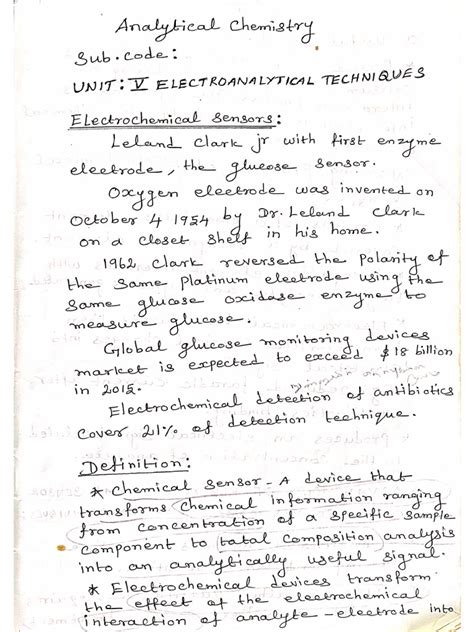 Analytical Chemistry
Sub. code:
UNIT: V ELECTROANALYTICAL TECHNIQUES
Electrochemical sensors:
Leland Clark jr with first enzyme
electrode, the glucose sensor.
Oxygen electrode was invented on
October 4 1954 by Dr. Leland Clark
on a closet shelf in his home.
1962 Clark reversed the polarity of
the same platinum electrode using the
same glucose oxidase enzyme to
measure glucose.
Global glucose monitoring devices
market is expected to exceed $18 billion
in 2015.
Electrochemical detection of antibiotics
cover 21% of detection technique.
Definition:
* Chemical sensor - A device that
transforms chemical information ranging
from concentration of a specific sample
component to total composition analysis
into an analytically useful signal.
* Electrochemical devices transform
the effect of the electrochemical
interaction of analyte-electrode into